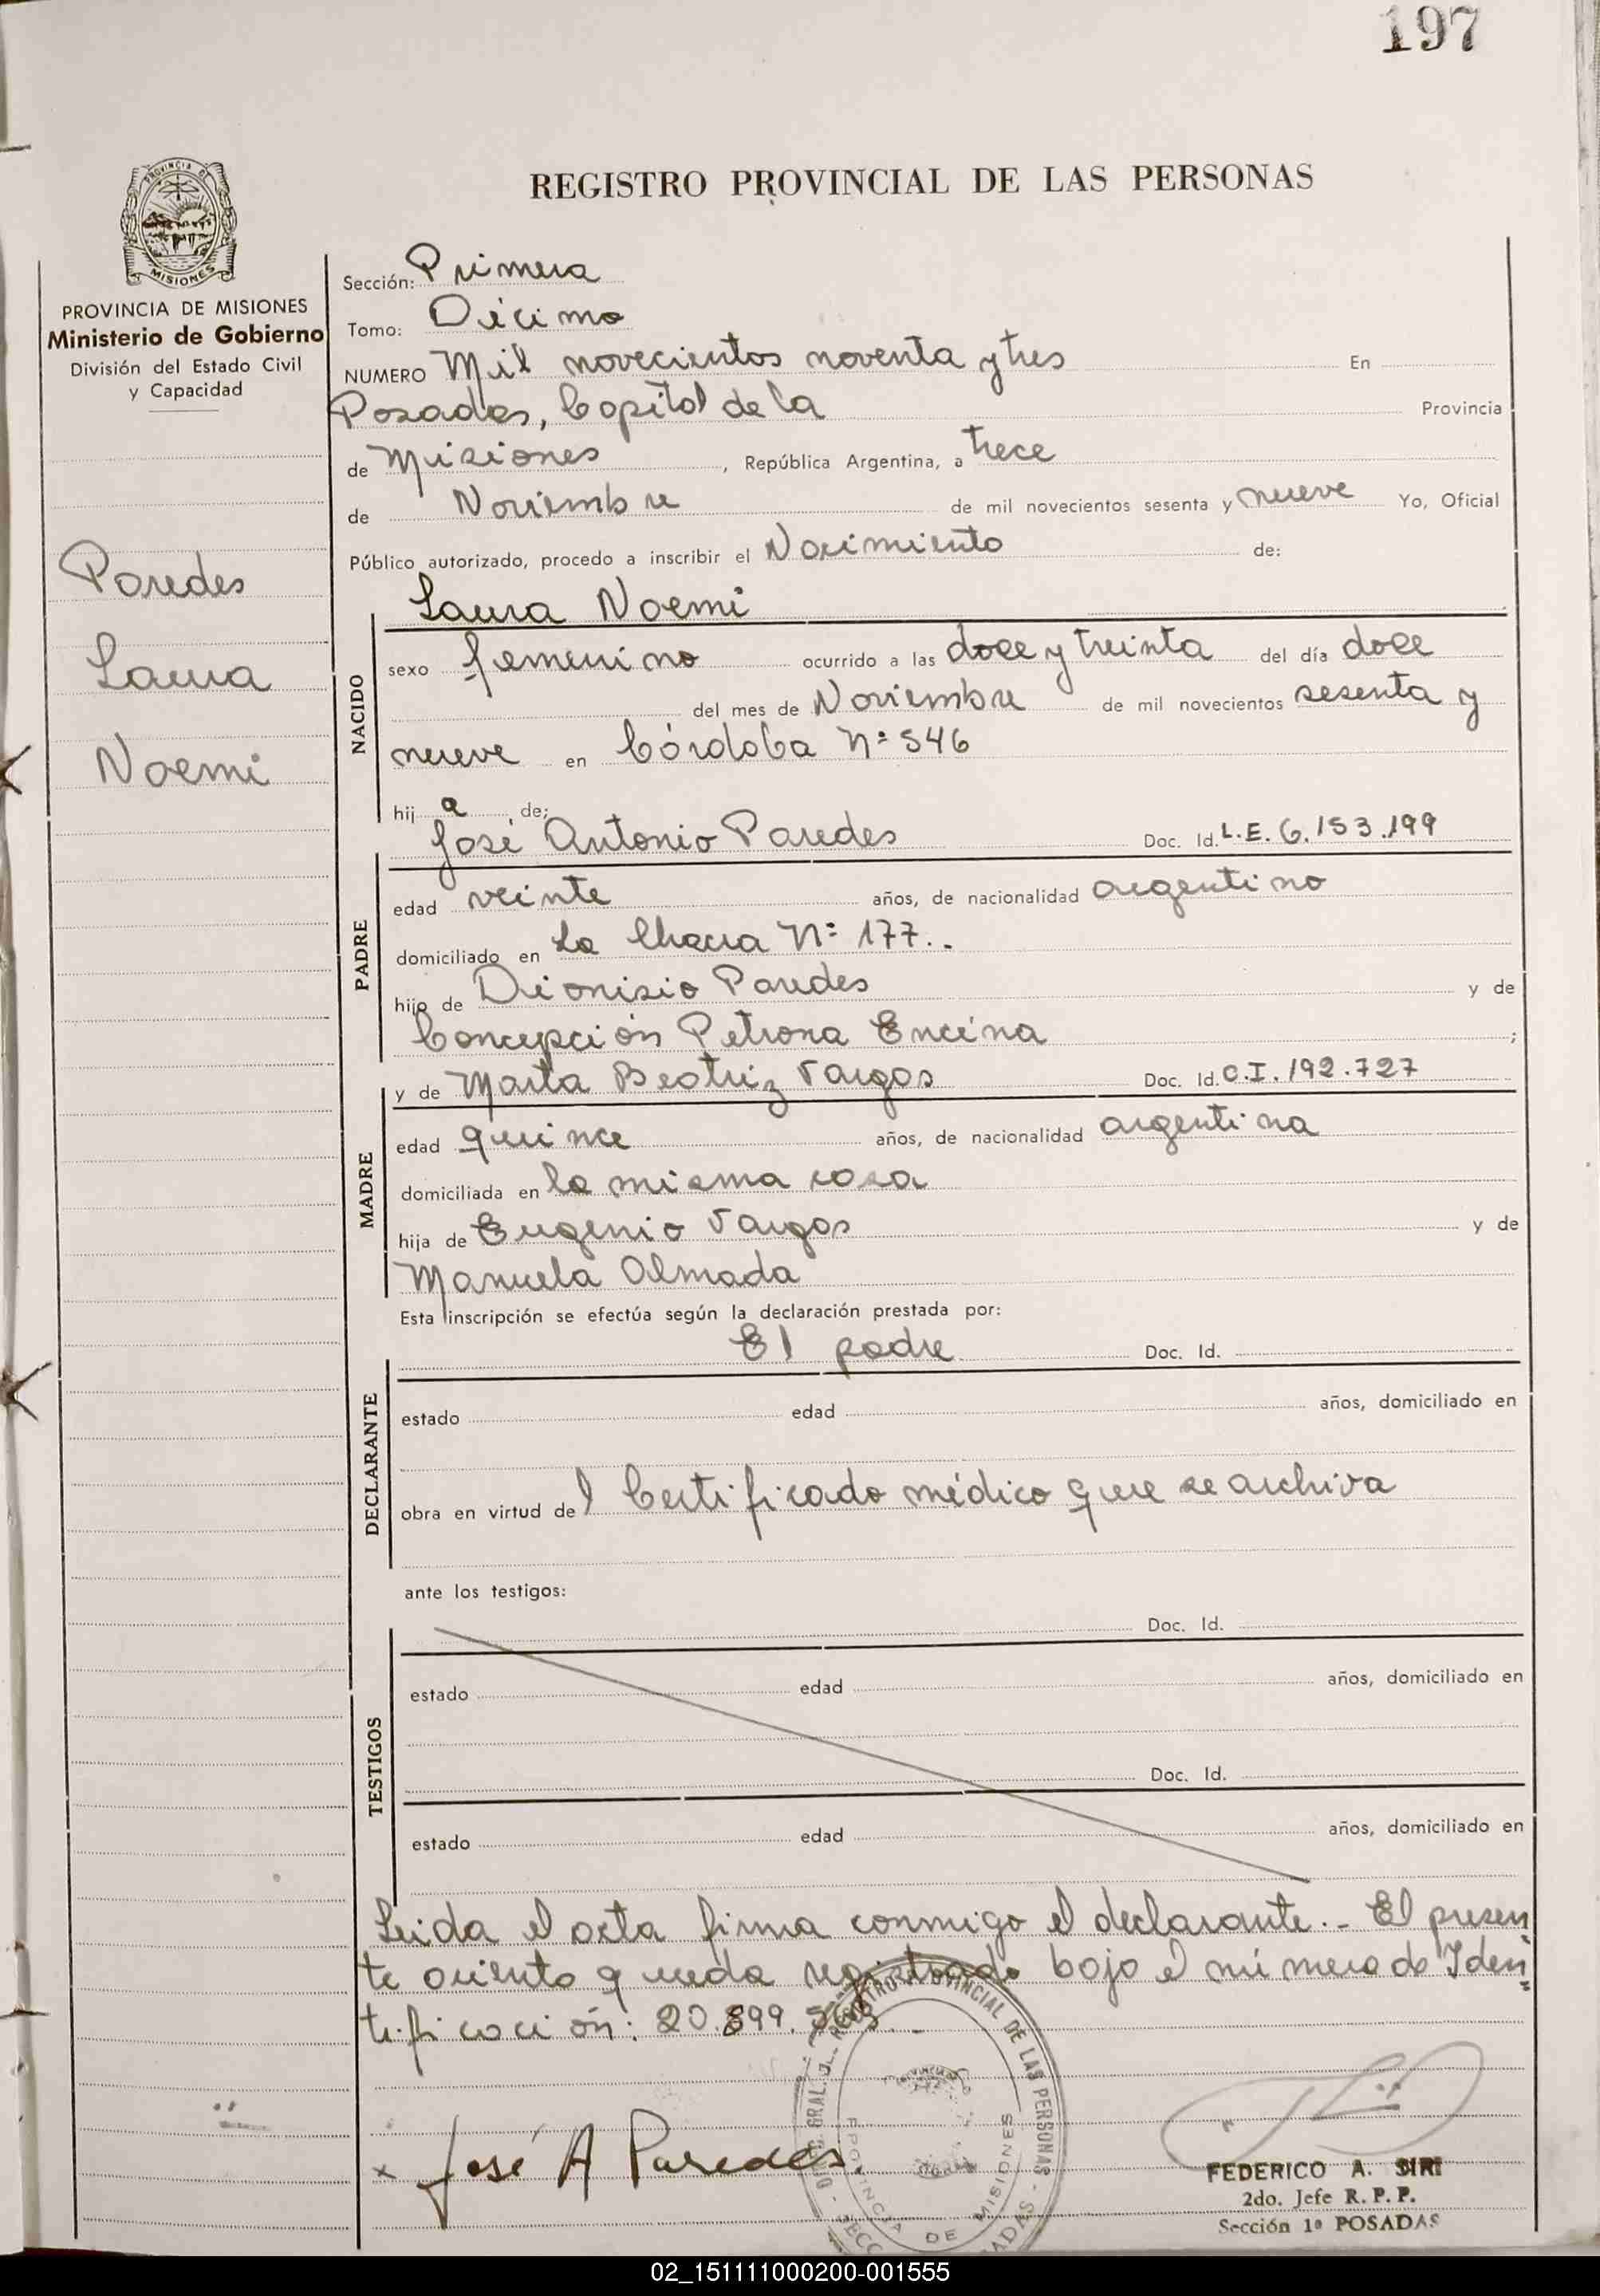 197
PROVINCIA DE
MISIONES
REGISTRO PROVINCIAL DE LAS PERSONAS
PROVINCIA DE MISIONES
Ministerio de Gobierno
División del Estado Civil
y Capacidad
Paredes
Laura
Noemi
Sección: Primera
Tomo: Décimo
NUMERO Mil novecientos noventa y tres En
Posadas, Capital de la Provincia
de Misiones, República Argentina, a trece
de Noviembre de mil novecientos sesenta y nueve Yo, Oficial
Público autorizado, procedo a inscribir el Nacimiento de:
NACIDO
Laura Noemi
sexo femenino ocurrido a las doce y treinta del día doce
del mes de Noviembre de mil novecientos sesenta y
nueve en Córdoba Nº 546
hij a de:
PADRE
José Antonio Paredes Doc. Id. L.E. 6.153.199
edad veinte años, de nacionalidad argentino
domiciliado en La Chacra Nº 177..
hijo de Dionisio Paredes y de
Concepción Petrona Encina ;
MADRE
y de Marta Beatriz Vargas Doc. Id. C.I. 192.727
edad quince años, de nacionalidad argentina
domiciliada en la misma casa
hija de Eugenio Vargas y de
Manuela Almada
Esta inscripción se efectúa según la declaración prestada por:
DECLARANTE
El padre Doc. Id.
estado edad años, domiciliado en
obra en virtud de l Certificado médico que se archiva
ante los testigos:
TESTIGOS
Doc. Id.
estado edad años, domiciliado en
Doc. Id.
estado edad años, domiciliado en
Leida el acta firma conmigo el declarante.- El presen
te asiento queda registrado bajo el número de Iden=
tificación: 20.899.
REGISTRO PROVINCIAL DE LAS PERSONAS
PROVINCIA DE MISIONES
x José A Paredes
FEDERICO A. SIRI
2do. Jefe R. P. P.
Sección 1ª POSADAS
02_151111000200-001555